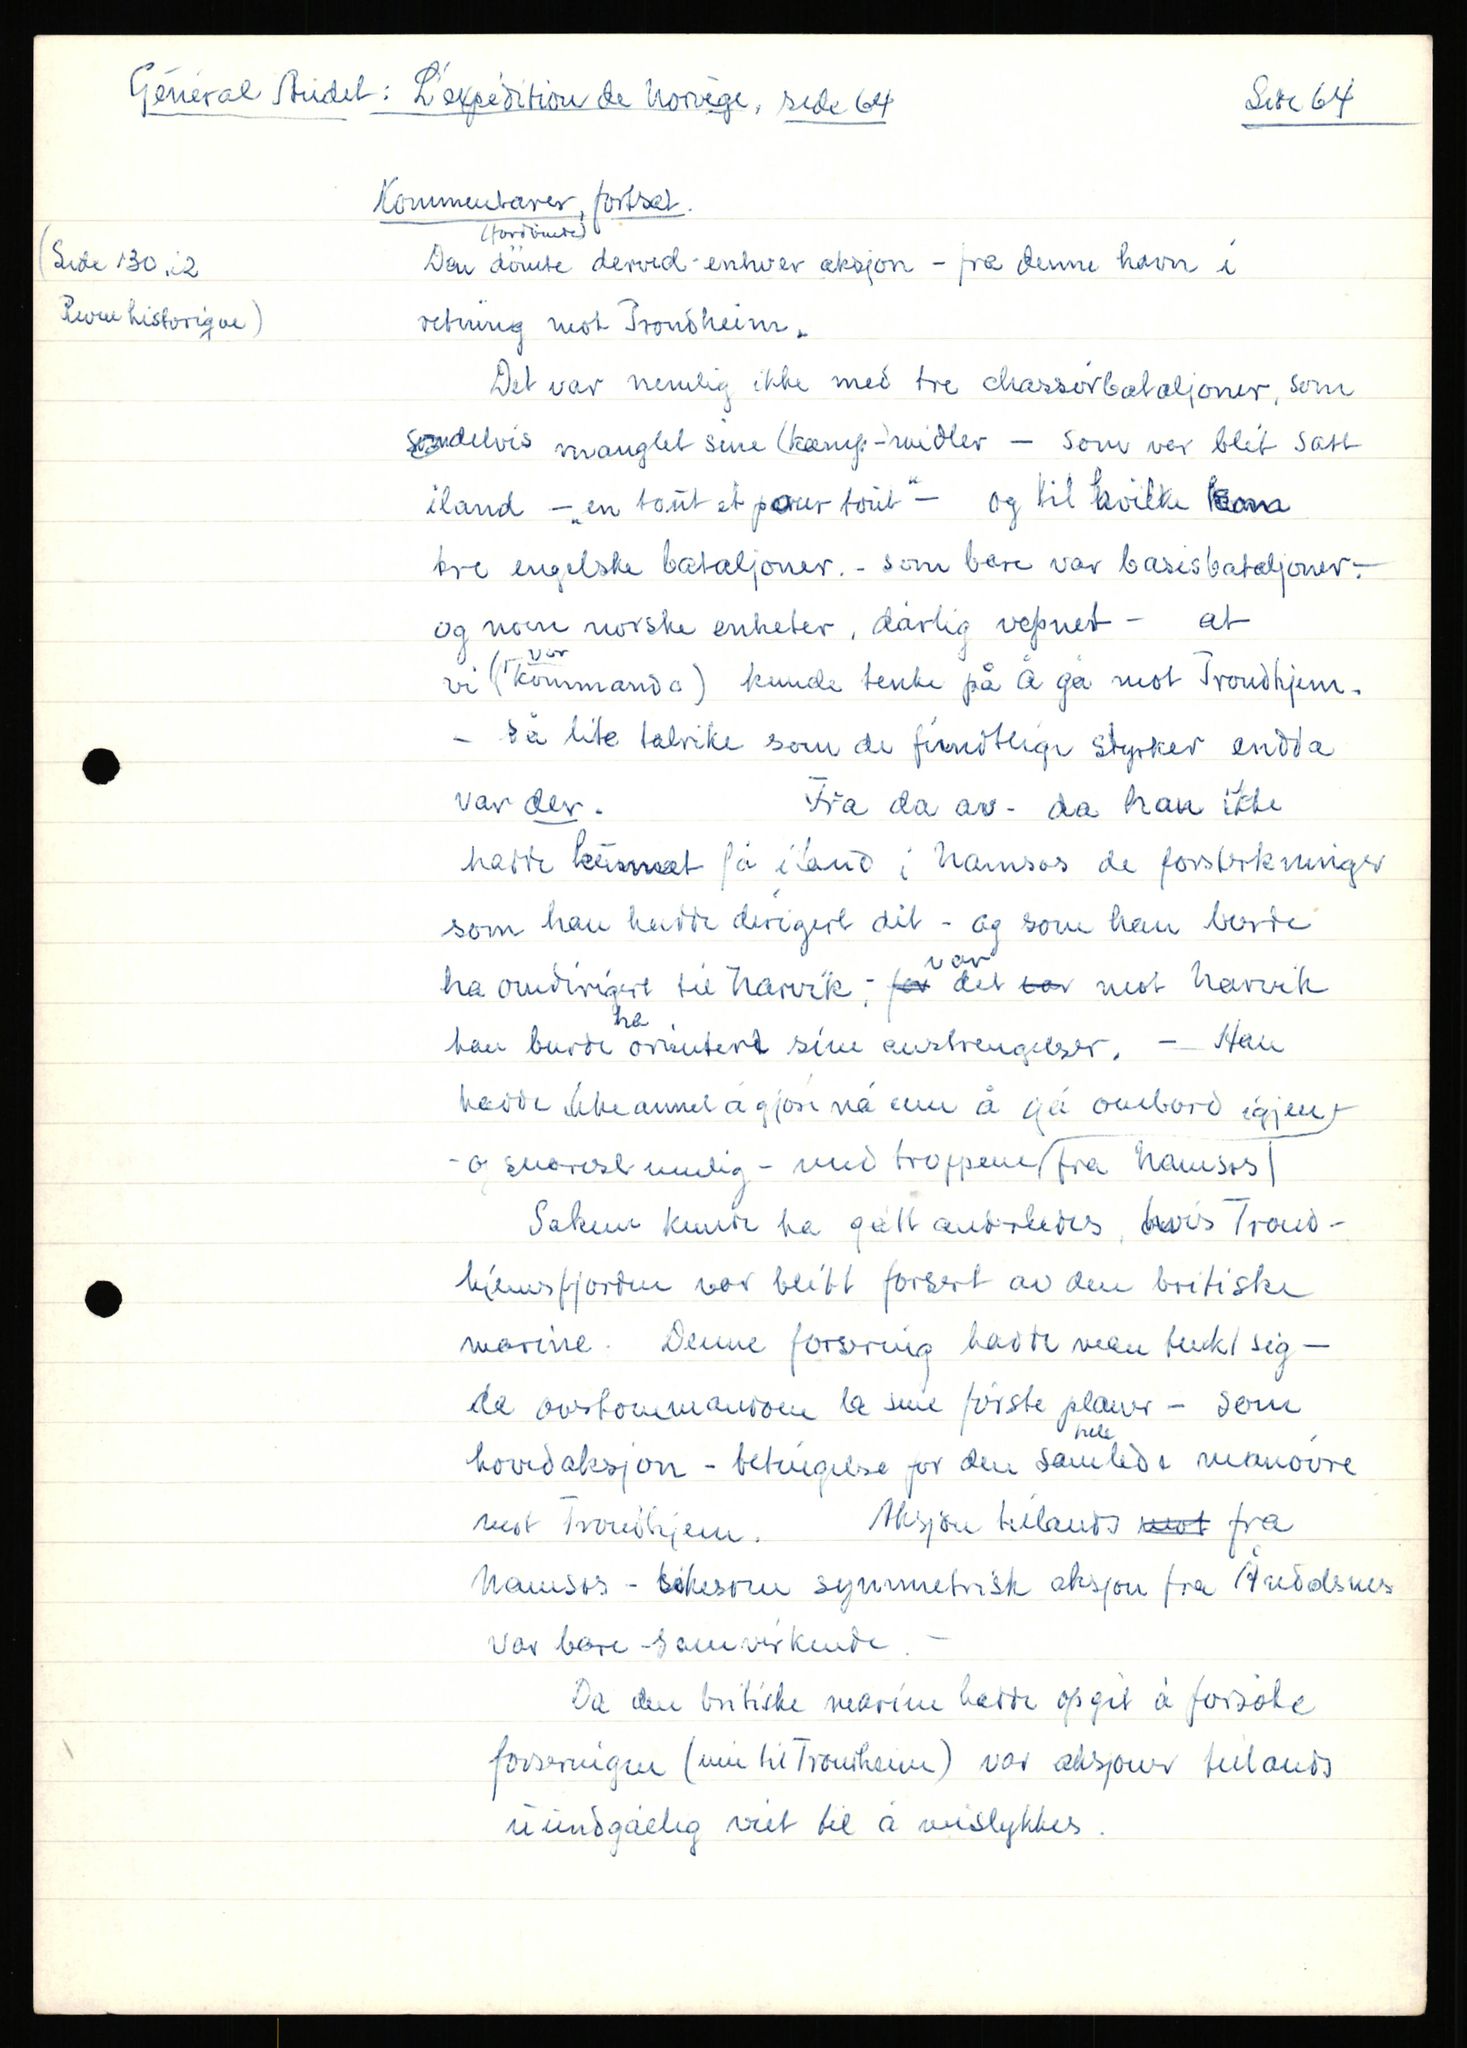 Général Audet: L'expédition de Norvège, side 64
Side 64
Kommentarer, fortsat.
(Side 130, i 2
Revue historique)
(fordömte)
Den dömte derved - enhver aksjon - fra denne havn i
retning mot Trondheim.
Det var nemlig ikke med tre chassörbataljoner, som
somdelvis manglet sine (kamp-)midler - som var blit satt
iland - „en tout et pour tout" - og til hvilke kom
tre engelske bataljoner. - som bare var basisbataljoner. -
og noen norske enheter, dårlig vepnet - at
vi (vår kommando) kunde tenke på å gå mot Trondhjem.
- så lite talrike som de fiendtlige styrker endda
var der. Fra da av - da han ikke
hadde kunnet få iland i Namsos de forsterkninger
som han hadde dirigert dit - og som han burde
ha omdirigert til Narvik; - for var det var mot Narvik
han burde ha orientert sine anstrengelser. - Han
hadde ikke annet å gjøre nå enn å gå ombord igjen -
- og snarest mulig - med troppene (fra Namsos)
Saken kunde ha gått anderledes, hvis Trond-
hjemsfjorden var blitt forsert av den britiske
marine. Denne forsering hadde man tenkt sig -
da overkommandoen la sine første planer - som
hovedaksjon - betingelse for den hele samlede manövre
mot Trondhjem. Aksjon tillands mot fra
Namsos - likesom symmetrisk aksjon fra Åndalsnes
var bare - samvirkende. -
Da den britiske marine hadde opgit å forsöke
forseringen (inn til Trondheim) var aksjoner tillands
uundgåelig viet til å mislykkes.